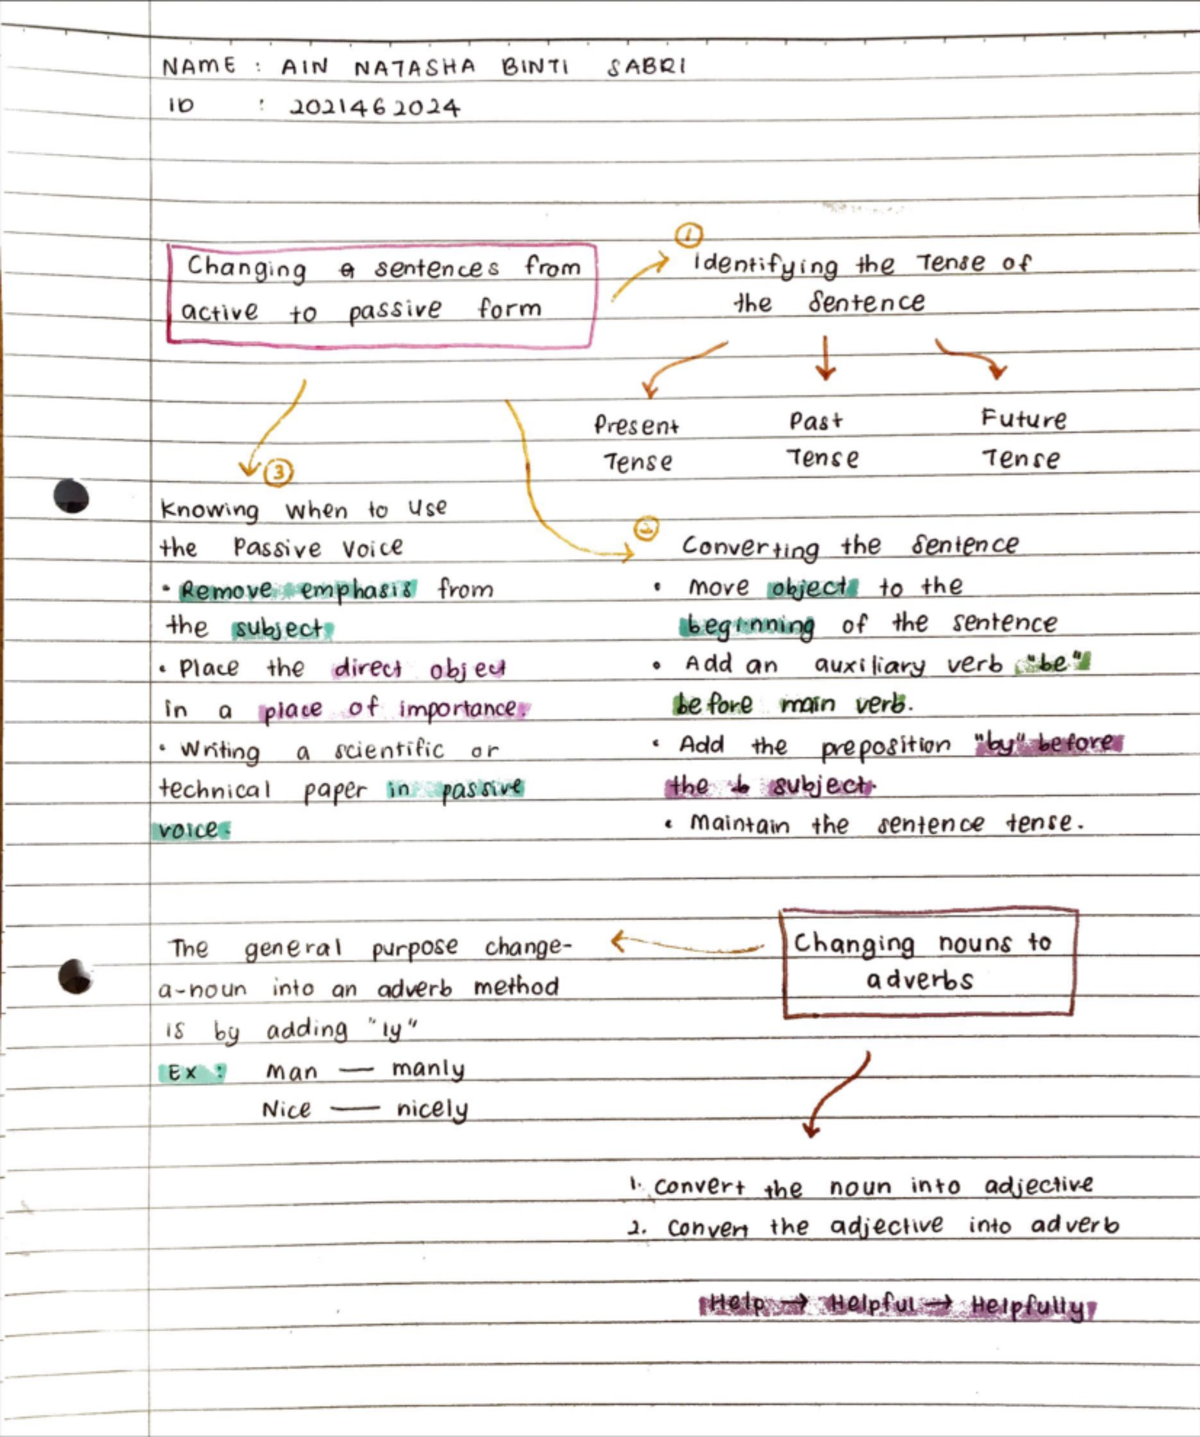 NAME : AIN NATASHA BINTI SABRI
ID : 2021462024
Changing a sentences from
active to passive form
1
Identifying the Tense of
the Sentence
Present
Tense
Past
Tense
Future
Tense
3
Knowing when to use
the Passive Voice
• Remove emphasis from
the subject
• Place the direct object
in a place of importance.
• Writing a scientific or
technical paper in passive
voice.
2
Converting the Sentence
• move object to the
beginning of the sentence
• Add an auxiliary verb "be"
before main verb.
• Add the preposition "by" before
the subject.
• Maintain the sentence tense.
Changing nouns to
adverbs
The general purpose change-
a-noun into an adverb method
is by adding "ly"
Ex : Man — manly
Nice — nicely
1. Convert the noun into adjective
2. Convert the adjective into adverb
Help → Helpful → Helpfully